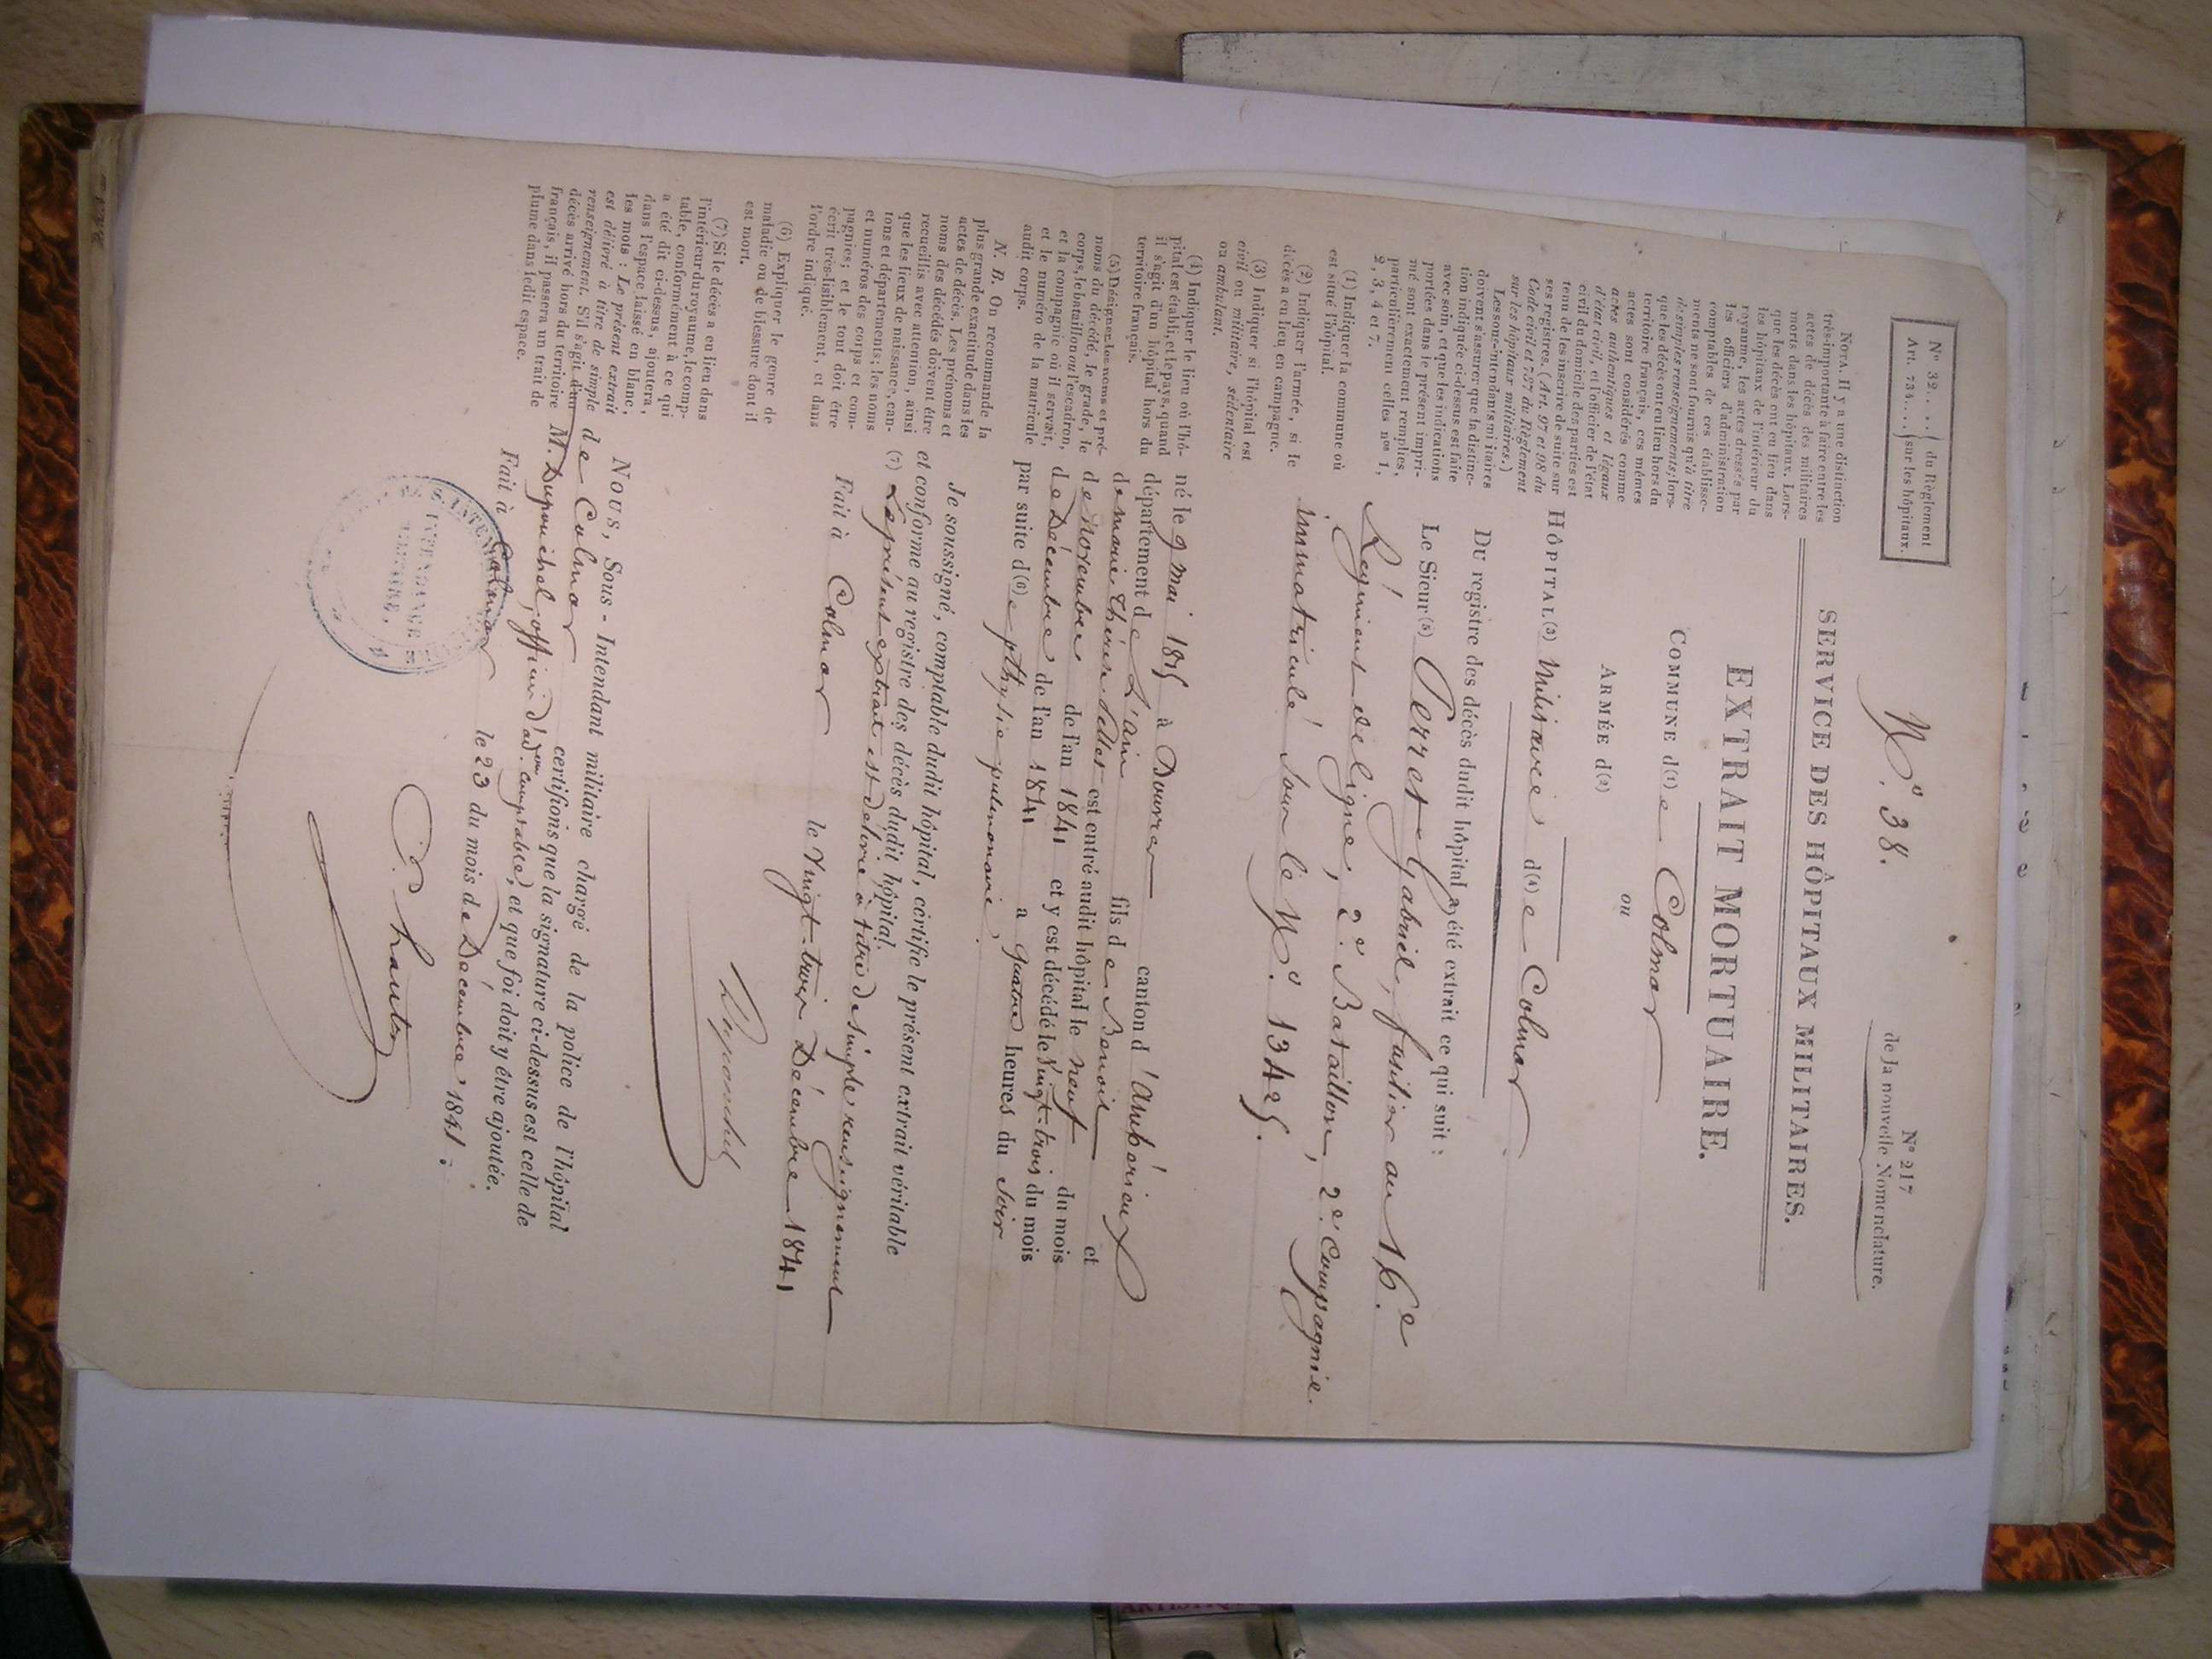 N° 32.... } du Règlement
Art. 734.... } sur les hôpitaux.
N° 38.
N° 217
de la nouvelle Nomenclature.
SERVICE DES HÔPITAUX MILITAIRES.
EXTRAIT MORTUAIRE.
COMMUNE d(1)e Colmar
ou
ARMÉE d(2)
HÔPITAL(3) Militaire d(4)e Colmar
Du registre des décès dudit hôpital a été extrait ce qui suit :
Le Sieur(5) Perret Gabriel, fusilier au 16e
Régiment de ligne, 2e Bataillon, 2e Compagnie.
immatriculé sous le N°. 13425.
né le 9 mai 1815 à Douvres canton d'Ambérieux
département de L'ain fils de Benoit et
de marie thérèse est entré audit hôpital le neuf du mois
de Novembre de l'an 1841 et y est décédé le Vingt-trois du mois
de Décembre de l'an 1841 a quatre heures du Soir
par suite d(6)e pthysie pulmonaire.
Je soussigné, comptable dudit hôpital, certifie le présent extrait véritable
et conforme au registre des décès dudit hôpital.
(7) Le présent extrait est délivré à titre de simple renseignement
Fait à Colmar le Vingt-trois Décembre 1841
Dupouchel
NOUS, Sous-Intendant militaire chargé de la police de l'hôpital
de Colmar certifions que la signature ci-dessus est celle de
M. Dupouchel, officier d'adon. comptable, et que foi doit y être ajoutée.
Fait à Colmar le 23 du mois de Décembre 1841.
INTENDANCE
MILITAIRE.
NOTA. Il y a une distinction
très-importante à faire entre les
actes de décès des militaires
morts dans les hôpitaux. Lors-
que les décès ont eu lieu dans
les hôpitaux de l'intérieur du
royaume, les actes dressés par
les officiers d'administration
comptables de ces établisse-
ments ne sont fournis qu'à titre
de simples renseignements; lors-
que les décès ont eu lieu hors du
territoire français, ces mêmes
actes sont considérés comme
actes authentiques et légaux
d'état civil, et l'officier de l'état
civil du domicile des parties est
tenu de les inscrire de suite sur
ses registres. (Art. 97 et 98 du
Code civil et 737 du Règlement
sur les hôpitaux militaires.)
Les sous-intendants militaires
doivent s'assurer que la distinc-
tion indiquée ci-dessus est faite
avec soin, et que les indications
portées dans le présent impri-
mé sont exactement remplies,
particulièrement celles nos 1,
2, 3, 4 et 7.
(1) Indiquer la commune où
est situé l'hôpital.
(2) Indiquer l'armée, si le
décès a eu lieu en campagne.
(3) Indiquer si l'hôpital est
civil ou militaire, sédentaire
ou ambulant.
(4) Indiquer le lieu où l'hô-
pital est établi, et le pays, quand
il s'agit d'un hôpital hors du
territoire français.
(5) Désigner les noms et pré-
noms du décédé, le grade, le
corps, le bataillon ou l'escadron,
et la compagnie où il servait,
et le numéro de la matricule
audit corps.
N. B. On recommande la
plus grande exactitude dans les
actes de décès. Les prénoms et
noms des décédés doivent être
recueillis avec attention, ainsi
que les lieux de naissance, can-
tons et départements; les noms
et numéros des corps et com-
pagnies; et le tout doit être
écrit très-lisiblement, et dans
l'ordre indiqué.
(6) Expliquer le genre de
maladie ou de blessure dont il
est mort.
(7) Si le décès a eu lieu dans
l'intérieur du royaume, le comp-
table, conformément à ce qui
a été dit ci-dessus, ajoutera,
dans l'espace laissé en blanc,
les mots : Le présent extrait
est délivré à titre de simple
renseignement. S'il s'agit d'un
décès arrivé hors du territoire
français, il passera un trait de
plume dans ledit espace.